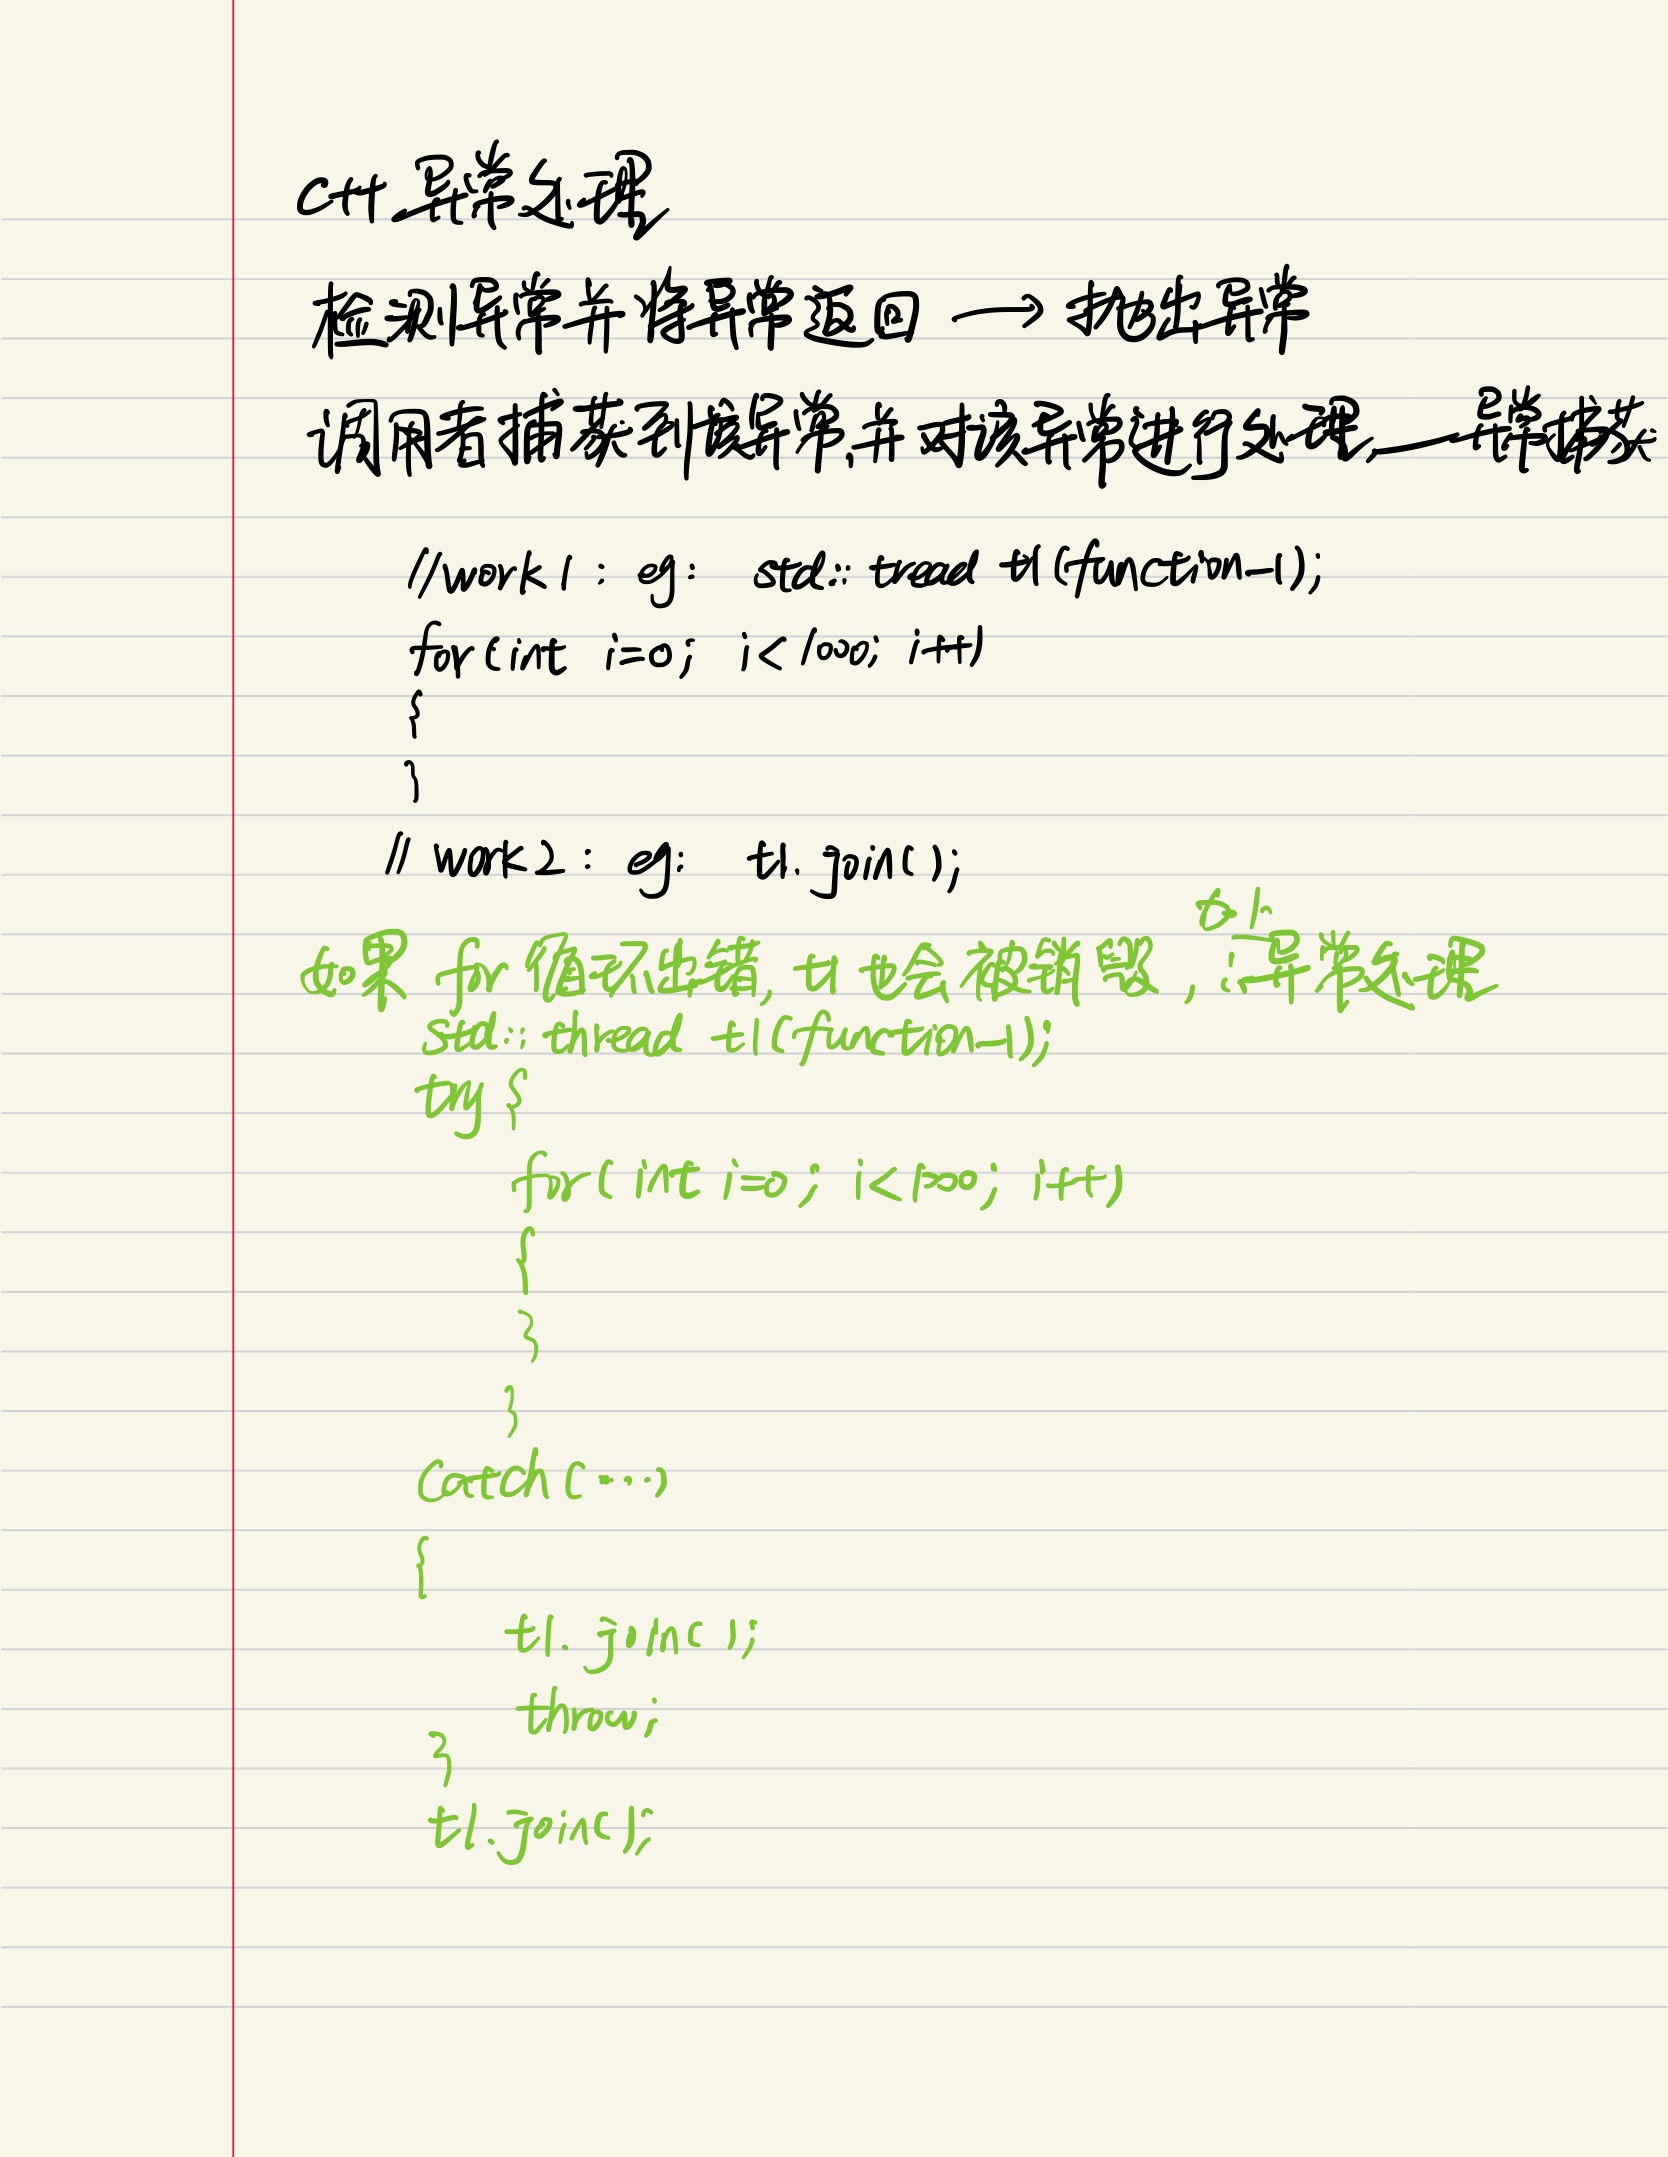 C++异常处理
检测异常并将异常返回 → 抛出异常
调用者捕获到该异常,并对该异常进行处理 — 异常捕获
//work1 : eg: std::tread t1(function-1);
for(int i=0; i<1000; i++)
{
}
// work2 : eg: t1.join();
如果 for 循环出错, t1 也会被销毁, ∴异常处理
std::thread t1(function-1);
try {
for(int i=0; i<1000; i++)
{
}
}
Catch(...)
{
t1.join();
throw;
}
t1.join();